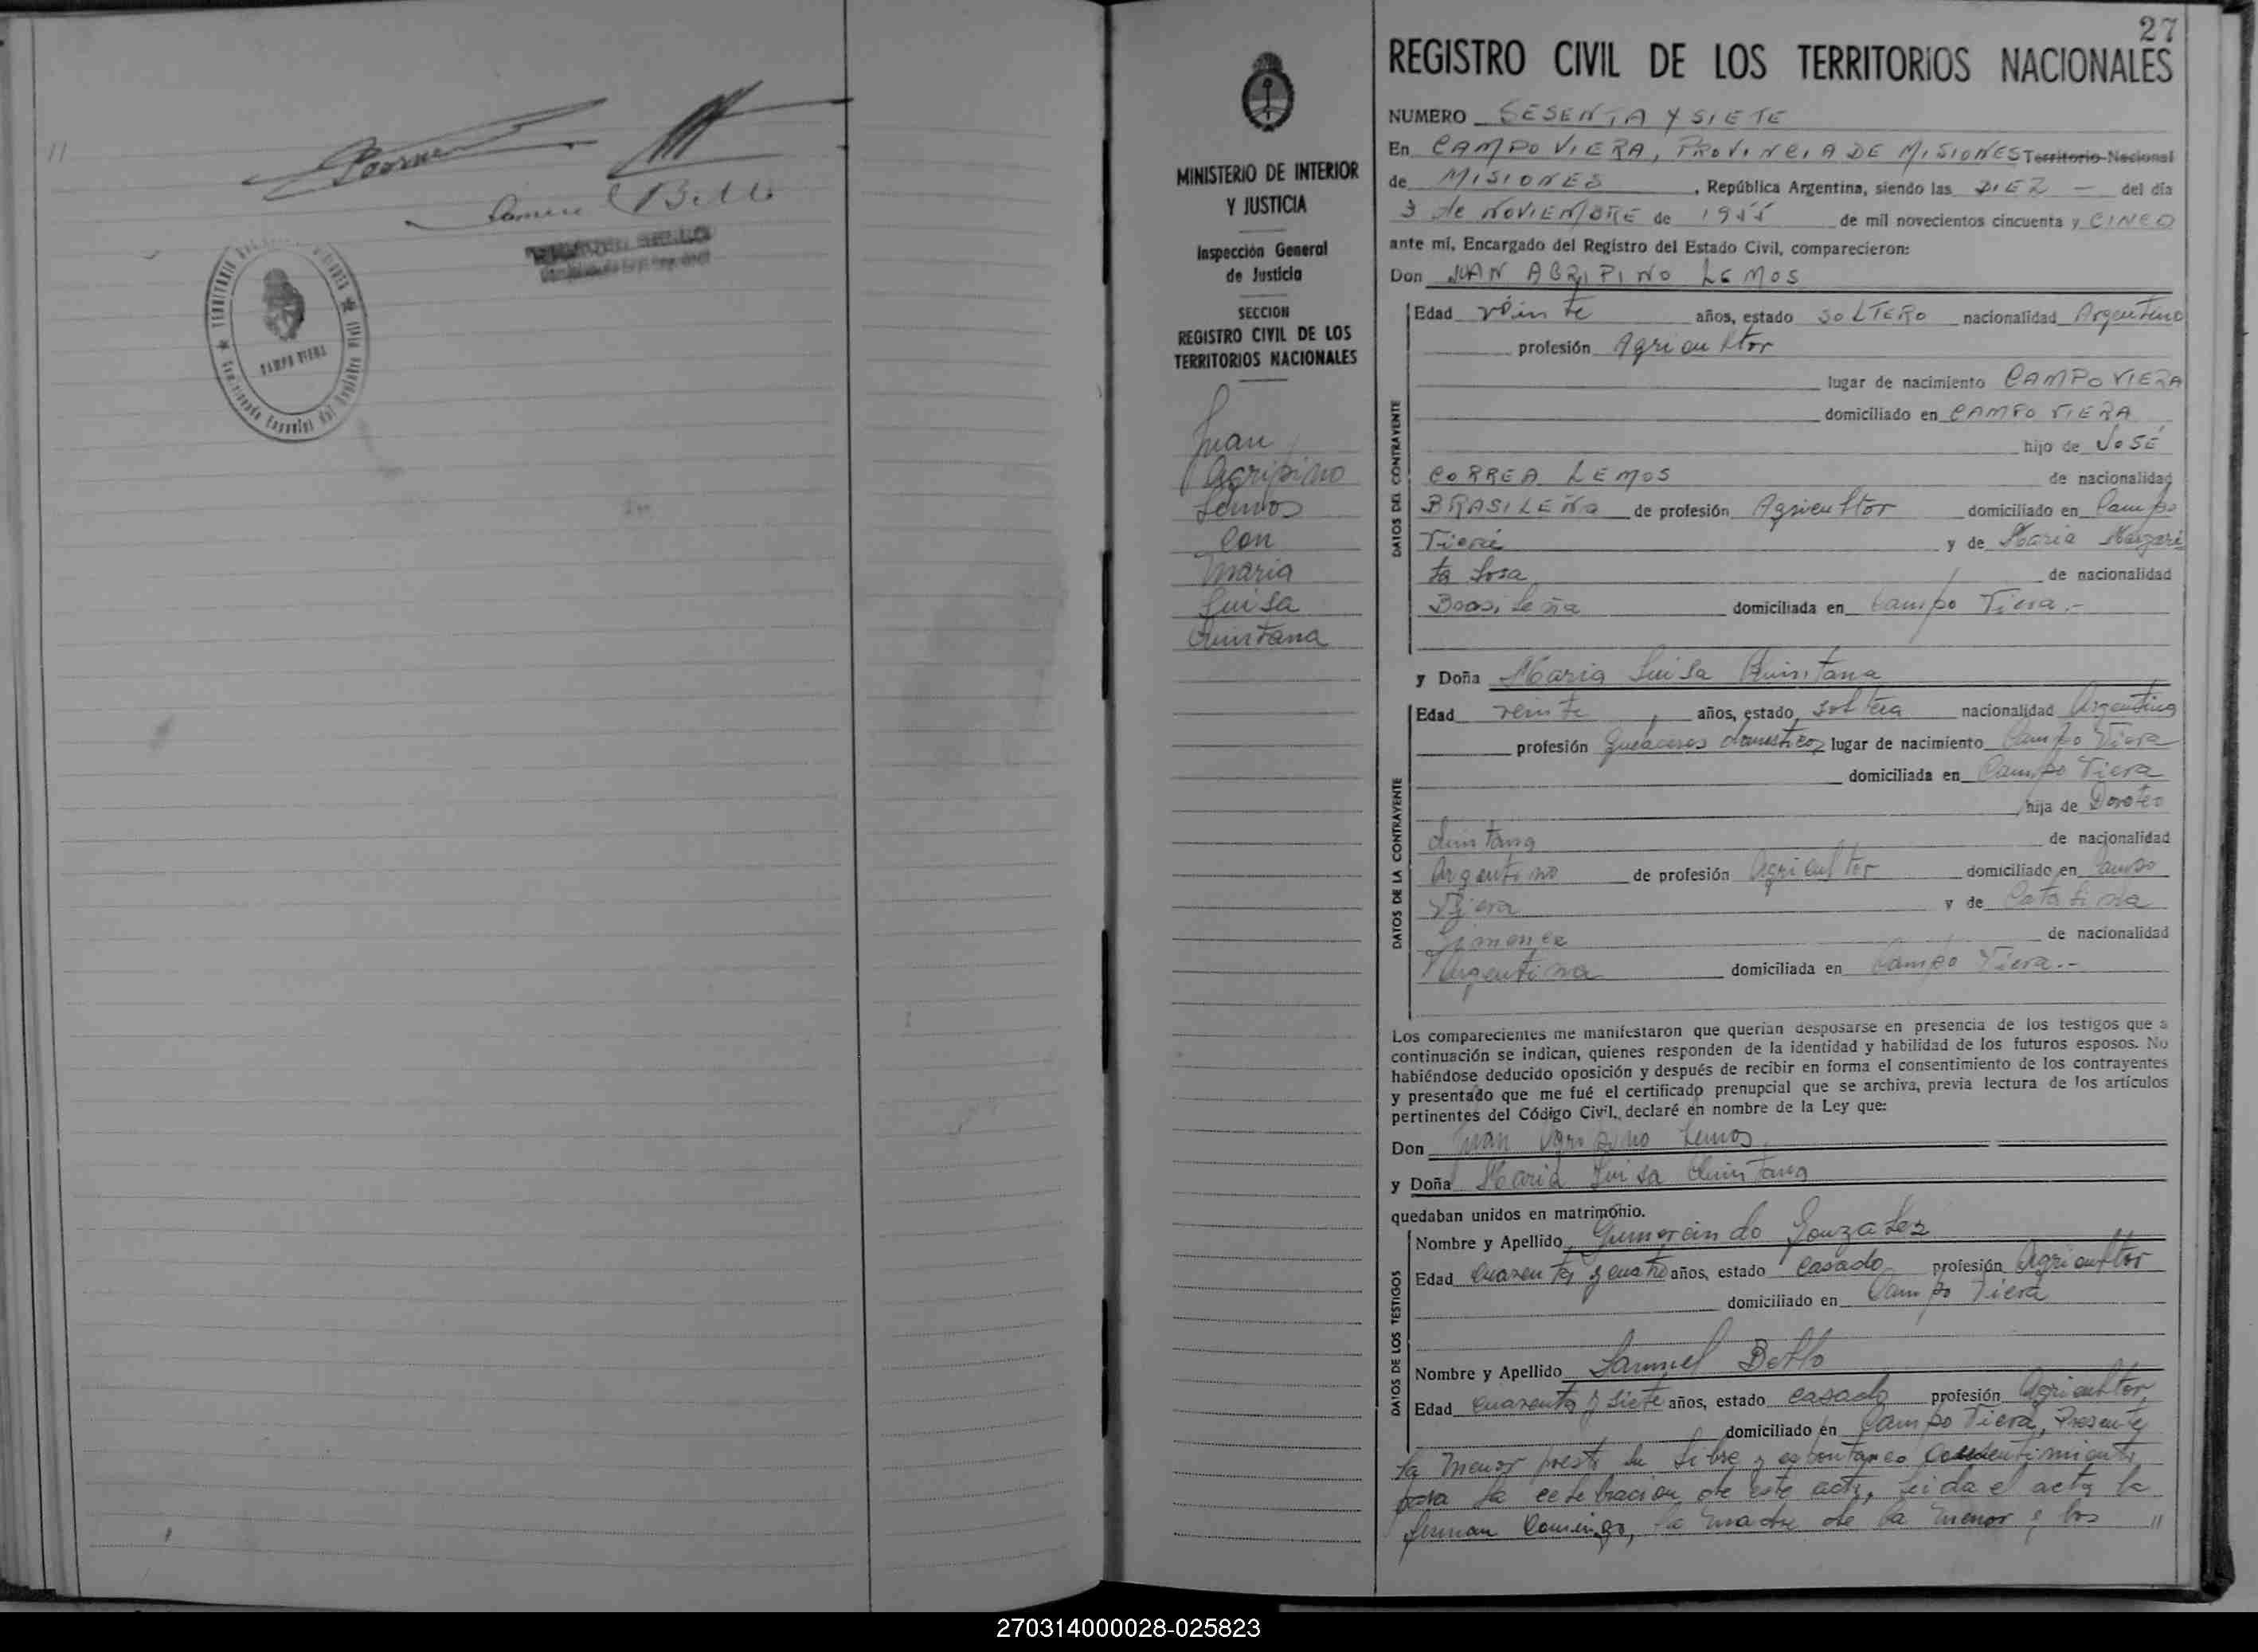 11
CAMPO VIERA
27
REGISTRO CIVIL DE LOS TERRITORIOS NACIONALES
MINISTERIO DE INTERIOR
Y JUSTICIA
Inspección General
de Justicia
SECCION
REGISTRO CIVIL DE LOS
TERRITORIOS NACIONALES
Juan
Agripino
Lemos
Con
Maria
Luisa
Quintana
NUMERO SESENTA Y SIETE
En CAMPO VIERA, PROVINCIA DE MISIONES Territorio Nacional
de MISIONES, República Argentina, siendo las DIEZ — del día
3 de NOVIEMBRE de 1955 de mil novecientos cincuenta y CINCO
ante mí, Encargado del Registro del Estado Civil, comparecieron:
Don JUAN AGRIPINO LEMOS
DATOS DEL CONTRAYENTE
Edad veinte años, estado SOLTERO nacionalidad Argentino
profesión Agricultor
lugar de nacimiento CAMPO VIERA
domiciliado en CAMPO VIERA
hijo de JOSÉ
CORREA LEMOS de nacionalidad
BRASILEÑA de profesión Agricultor domiciliado en Campo
Viera y de Maria Margari
ta Sosa de nacionalidad
Brasileña domiciliada en Campo Viera.-
y Doña Maria Luisa Quintana
DATOS DE LA CONTRAYENTE
Edad veinte, años, estado soltera nacionalidad Argentina
profesión Quehaceres domesticos lugar de nacimiento Campo Viera
domiciliada en Campo Viera
hija de Doroteo
Quintana de nacionalidad
Argentino de profesión Agricultor domiciliado en Campo
Viera y de Catalina
Gimenez de nacionalidad
Argentina domiciliada en Campo Viera.-
Los comparecientes me manifestaron que querían desposarse en presencia de los testigos que a
continuación se indican, quienes responden de la identidad y habilidad de los futuros esposos. No
habiéndose deducido oposición y después de recibir en forma el consentimiento de los contrayentes
y presentado que me fué el certificado prenupcial que se archiva, previa lectura de los artículos
pertinentes del Código Civil, declaré en nombre de la Ley que:
Don Juan Agripino Lemos
y Doña Maria Luisa Quintana
quedaban unidos en matrimonio.
DATOS DE LOS TESTIGOS
Nombre y Apellido Gumercindo Gonzalez
Edad Cuarenta y cuatro años, estado Casado profesión Agricultor
domiciliado en Campo Viera
Nombre y Apellido Samuel Bello
Edad Cuarenta y siete años, estado casado profesión Agricultor
domiciliado en Campo Viera, Presente
la menor presta su libre y espontaneo consentimiento
para la celebracion de este acto, leida el acta la
firman conmigo, la madre de la menor y los 11
270314000028-025823